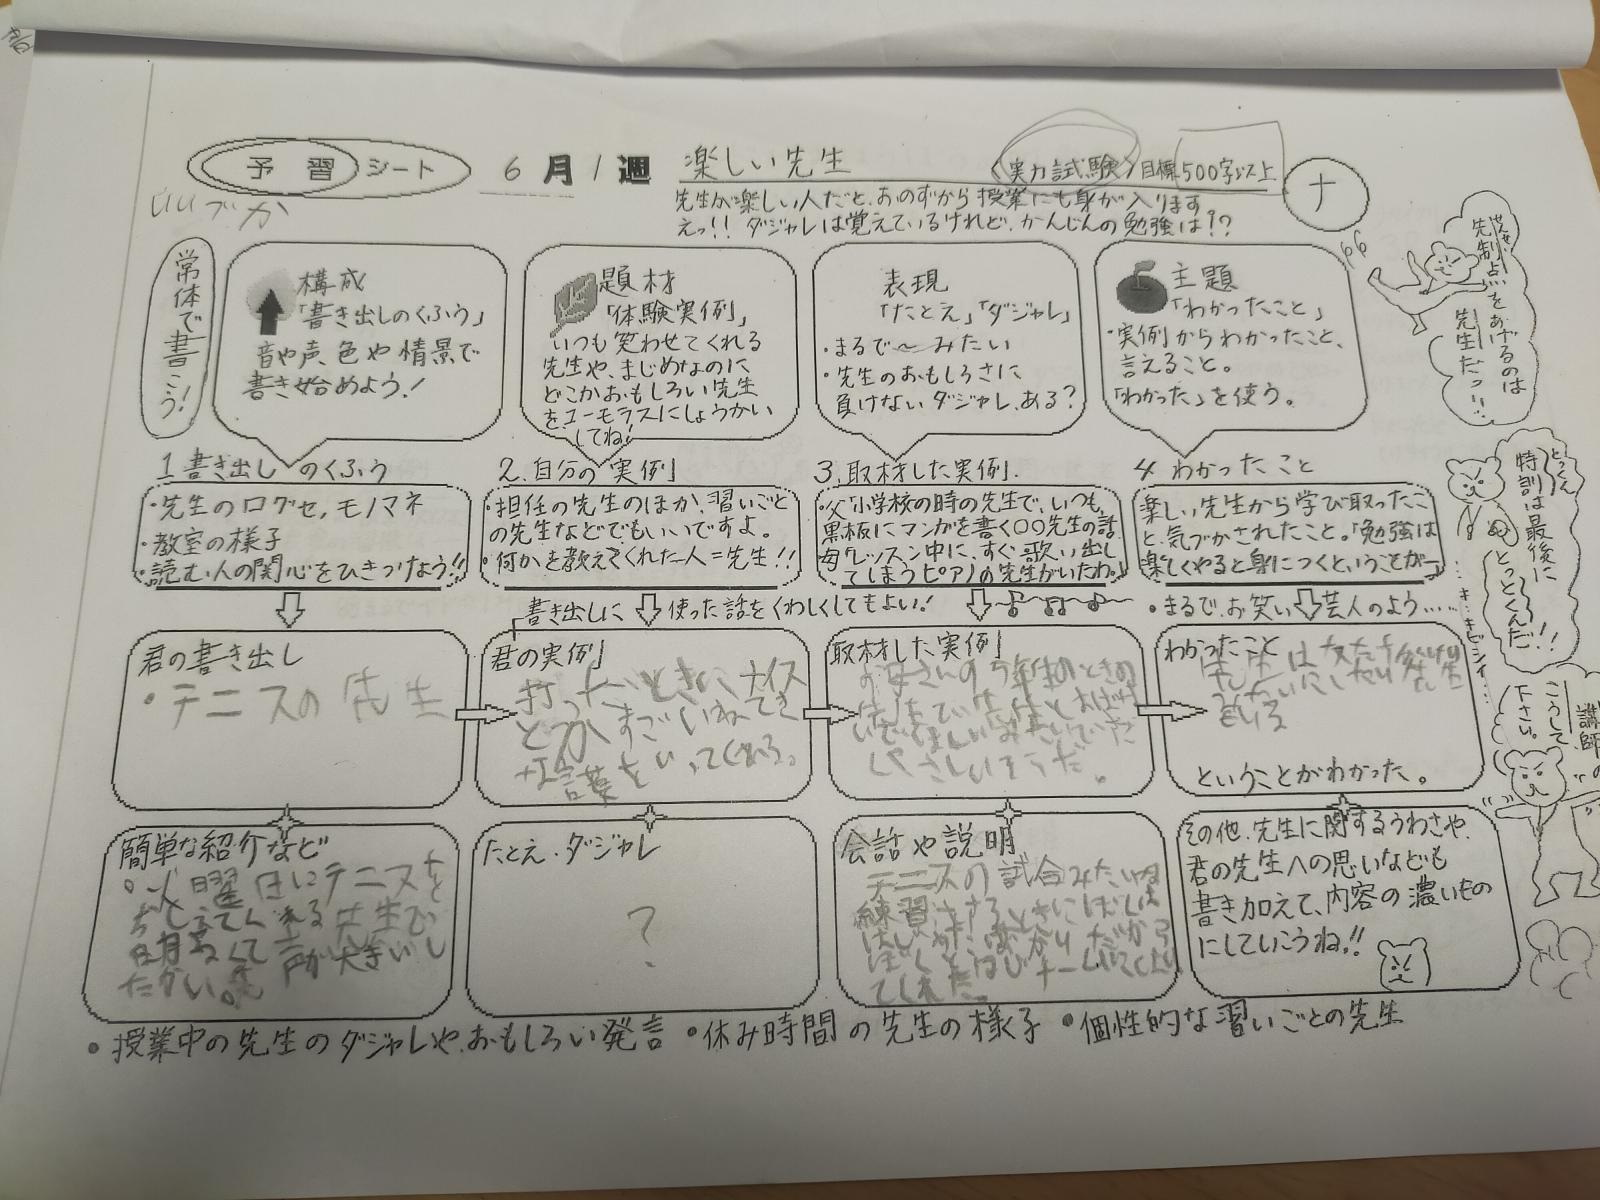 予習シート 6月1週 楽しい先生 実力試験 目標500字以上 ナ
先生が楽しい人だと、おのずから授業にも身が入ります
えっ!! ダジャレは覚えているけれど、かんじんの勉強は!?
常体で書こう!
構成
「書き出しのくふう」
音や声、色や情景で
書き始めよう!
題材
「体験実例」
いつも笑わせてくれる
先生や、まじめなのに
どこかおもしろい先生
をユーモラスにしょうかい
してね!
表現
「たとえ」「ダジャレ」
・まるで〜みたい
・先生のおもしろさに
負けないダジャレ、ある?
主題
「わかったこと」
・実例からわかったこと、
言えること。
「わかった」を使う。
せんせい
先制点をあげるのは
先生だっ!!
1.書き出しのくふう
・先生の口グセ,モノマネ
・教室の様子
・読む人の関心をひきつけよう!!
2.自分の実例
・担任の先生のほか、習いごと
の先生などでもいいですよ。
・何かを教えてくれた人=先生!!
3.取材した実例.
・父「小学校の時の先生で、いつも
黒板にマンガを書く〇〇先生の話
母「レッスン中に、すぐ歌い出し
てしまうピアノの先生がいたわ。」
4 わかったこと
楽しい先生から学び取ったこ
と、気づかされたこと。「勉強は
楽しくやると身につくということが―
とっくん
特訓は最後に
とっとくんだ!!
書き出しに使った話をくわしくしてもよい!
・まるで、お笑い芸人のよう……
君の書き出し
・テニスの先生
君の実例
打ったときにナイス
とかすごいねてき
な言葉をいってくれる。
取材した実例
お母さんの5年生のときの
やさしいそうだ。
わかったこと
ということがわかった。
こうして
下さい。
講師の
簡単な紹介など
・火曜日にテニスを
おしえてくれる先生で
声が大きいし
たとえ・ダジャレ
?
会話や説明
テニスの試合みたいな
練習
てくれた。
その他、先生に関するうわさや、
君の先生への思いなども
書き加えて、内容の濃いもの
にしていこうね!!
・授業中の先生のダジャレや、おもしろい発言 ・休み時間の先生の様子 ・個性的な習いごとの先生